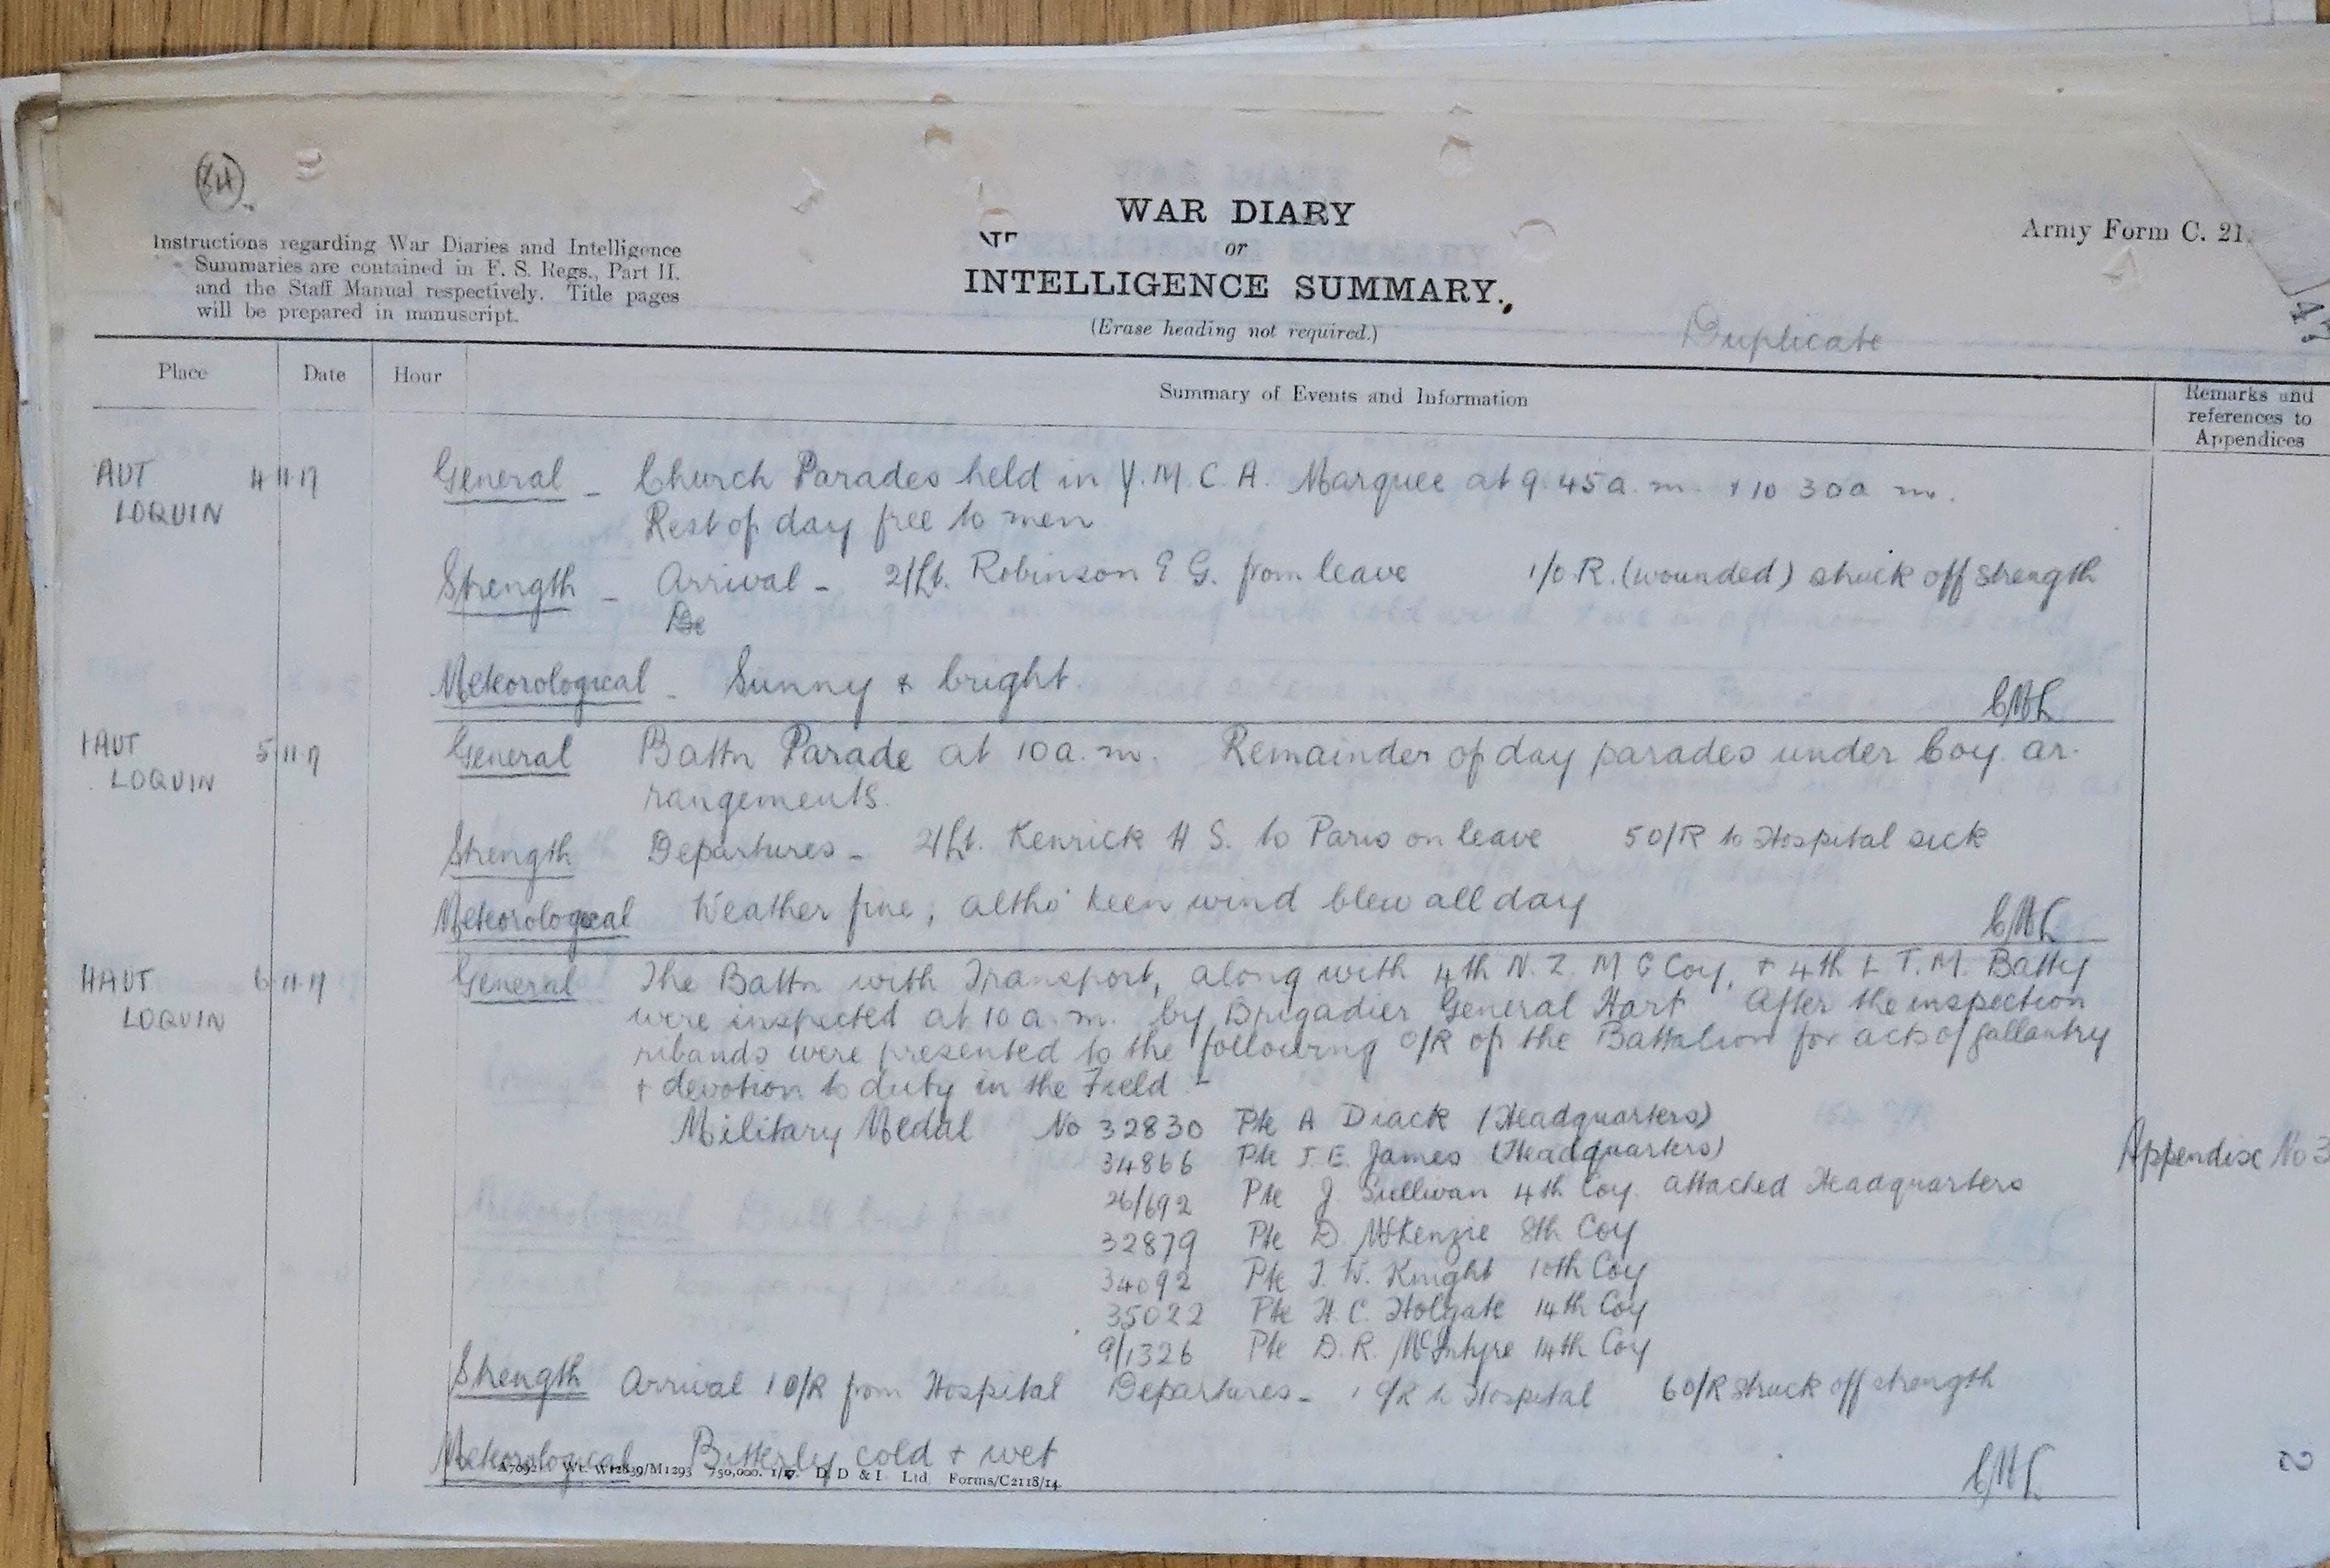 (84).
Instructions regarding War Diaries and Intelligence
Summaries are contained in F. S. Regs., Part II.
and the Staff Manual respectively. Title pages
will be prepared in manuscript.
WAR DIARY
or
INTELLIGENCE SUMMARY.
(Erase heading not required.)
Army Form C. 21
Duplicate
Place Date Hour Summary of Events and Information Remarks and references to Appendices
AUT LOQUIN 4 11·17 General – Church Parades held in Y.M.C.A. Marquee at 9.45 a.m. + 10 30 a m.
Rest of day free to men
Strength – Arrival – 2/Lt. Robinson E G. from leave 1/O.R. (wounded) struck off strength
De
Meteorological – Sunny & bright.
HAUT LOQUIN 5 11·17 General Battn Parade at 10 a.m. Remainder of day parades under Coy. ar-
rangements.
Strength Departures – 2/Lt. Kenrick H S. to Paris on leave 5 O/R to Hospital sick
Meteorological Weather fine, altho' keen wind blew all day
HAUT LOQUIN 6 11·17 General The Battn with Transport, along with 4th N.Z. M G Coy, + 4th L T.M. Batty
were inspected at 10 a.m. by Brigadier General Hart After the inspection
ribands were presented to the following O/R of the Battalion for acts of gallantry
+ devotion to duty in the Field –
Military Medal No 32830 Pte A Diack (Headquarters)
34866 Pte J. E. James (Headquarters)
Appendix No 3
26/692 Pte J. Sullivan 4th Coy. attached Headquarters
32879 Pte D. McKenzie 8th Coy
34092 Pte J. W. Knight 10th Coy
35022 Pte H. C. Holgate 14th Coy
9/1326 Pte D. R. McIntyre 14th Coy
Strength Arrival 1 O/R from Hospital Departures – 1 O/R to Hospital 6 O/R struck off strength
Meteorological Bitterly cold + wet
A7092. Wt. W12839/M1293 750,000. 1/17. D. D & L. Ltd. Forms/C2118/14.
2